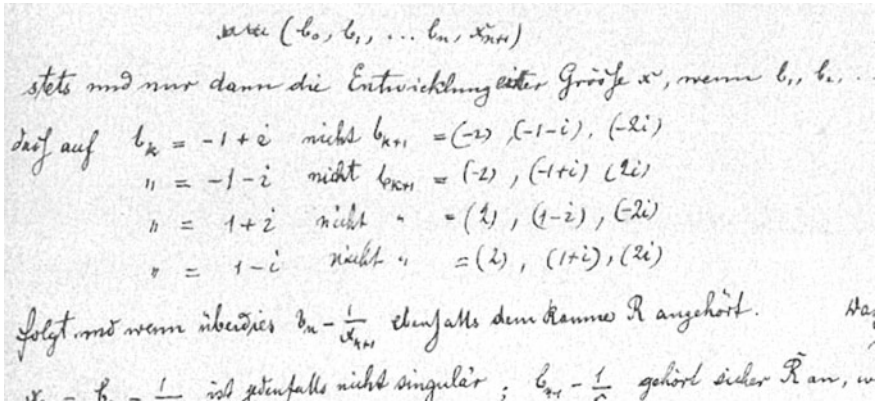 (b₀, b₁, ... bₙ, xₙ₊₁)
stets und nur dann die Entwicklung einer Grösse x, wenn b₁, b₂, ...
darf auf bₖ = -1+i nicht bₖ₊₁ = (-2), (-1-i), (-2i)
" = -1-i nicht bₖ₊₁ = (-2), (-1+i) (2i)
" = 1+i nicht " = (2), (1-i), (-2i)
" = 1-i nicht " = (2), (1+i), (2i)
folgt und wenn überdies bₙ - 1/xₙ₊₁ ebenfalls dem Raume R angehört.
ist jedenfalls nicht singulär; gehört sicher R an,